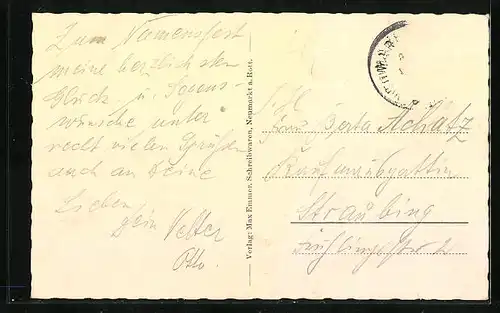 Zum Namensfest
meine herzlichsten
Glück- u. Segens-
wünsche unter
recht vielen Grüßen
auch an Deine
Lieben,
Dein Vetter
Otto.
Verlag: Max Emmer, Schreibwaren, Neumarkt a. Rott.
Frau Berta Schatz
Kaufmannsgattin
Straubing